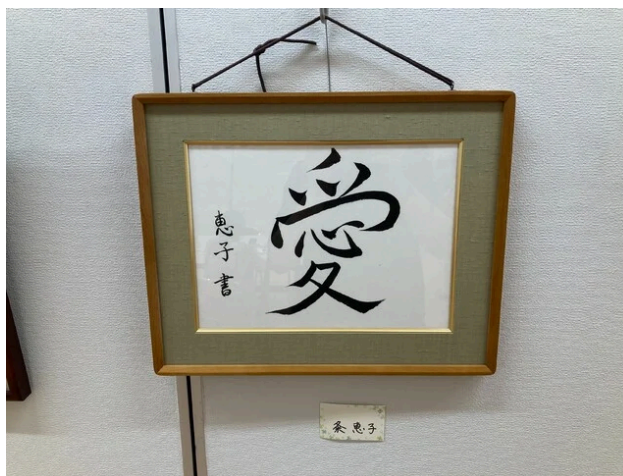 愛
恵子書
恵子